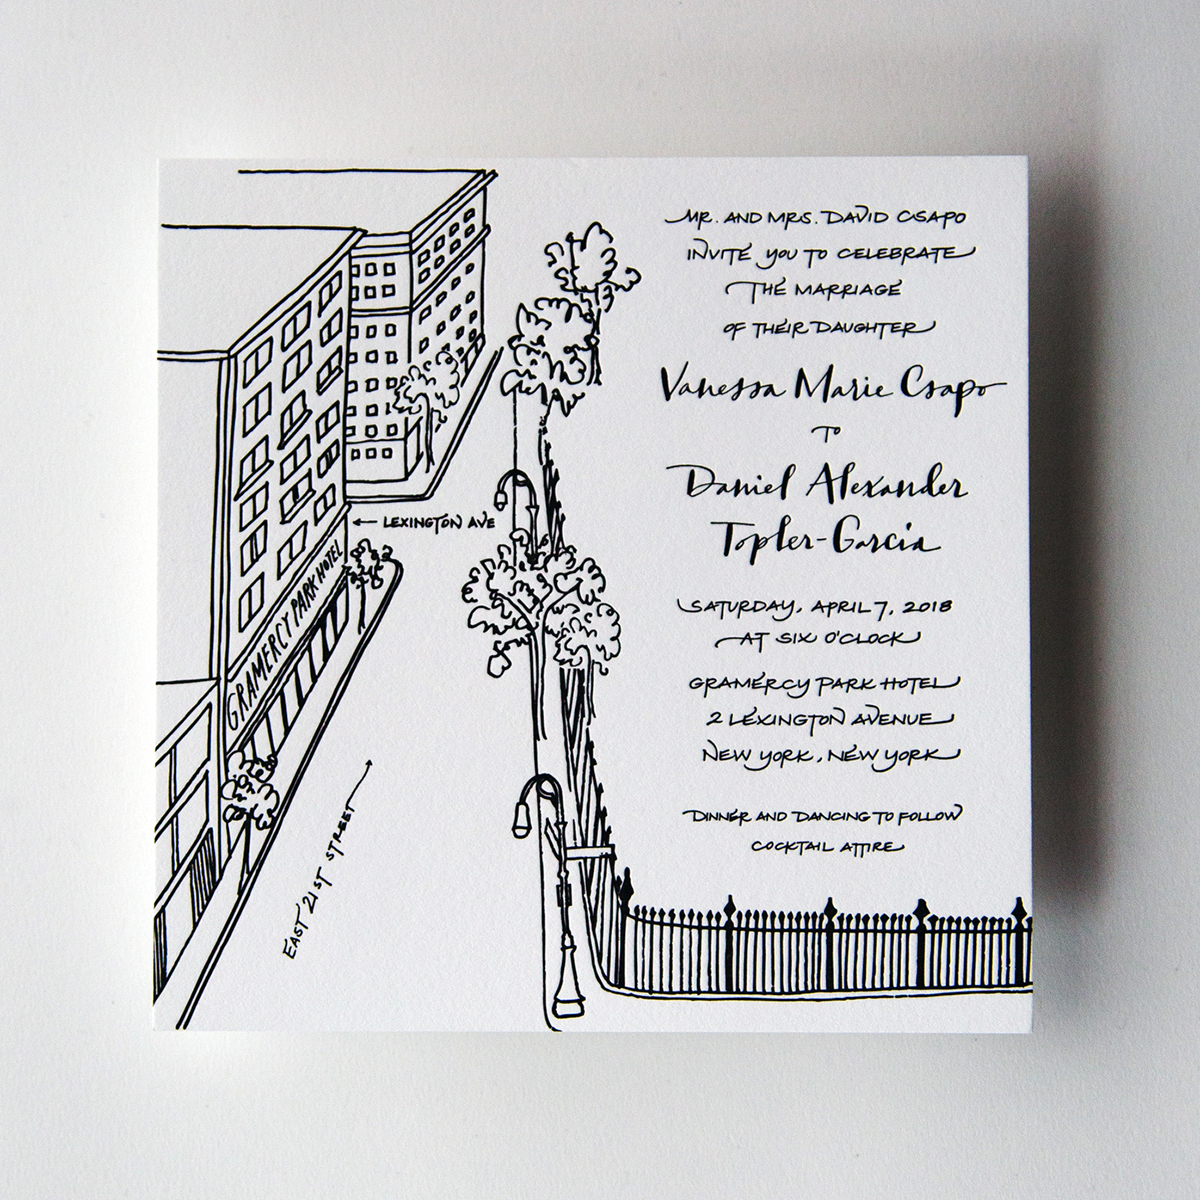 MR. AND MRS. DAVID CSAPO
INVITE YOU TO CELEBRATE
THE MARRIAGE
OF THEIR DAUGHTER
Vanessa Marie Csapo
TO
Daniel Alexander
Topler-Garcia
SATURDAY, APRIL 7, 2018
AT SIX O'CLOCK
GRAMERCY PARK HOTEL
2 LEXINGTON AVENUE
NEW YORK, NEW YORK
DINNER AND DANCING TO FOLLOW
COCKTAIL ATTIRE
← LEXINGTON AVE
GRAMERCY PARK HOTEL
EAST 21ST STREET →